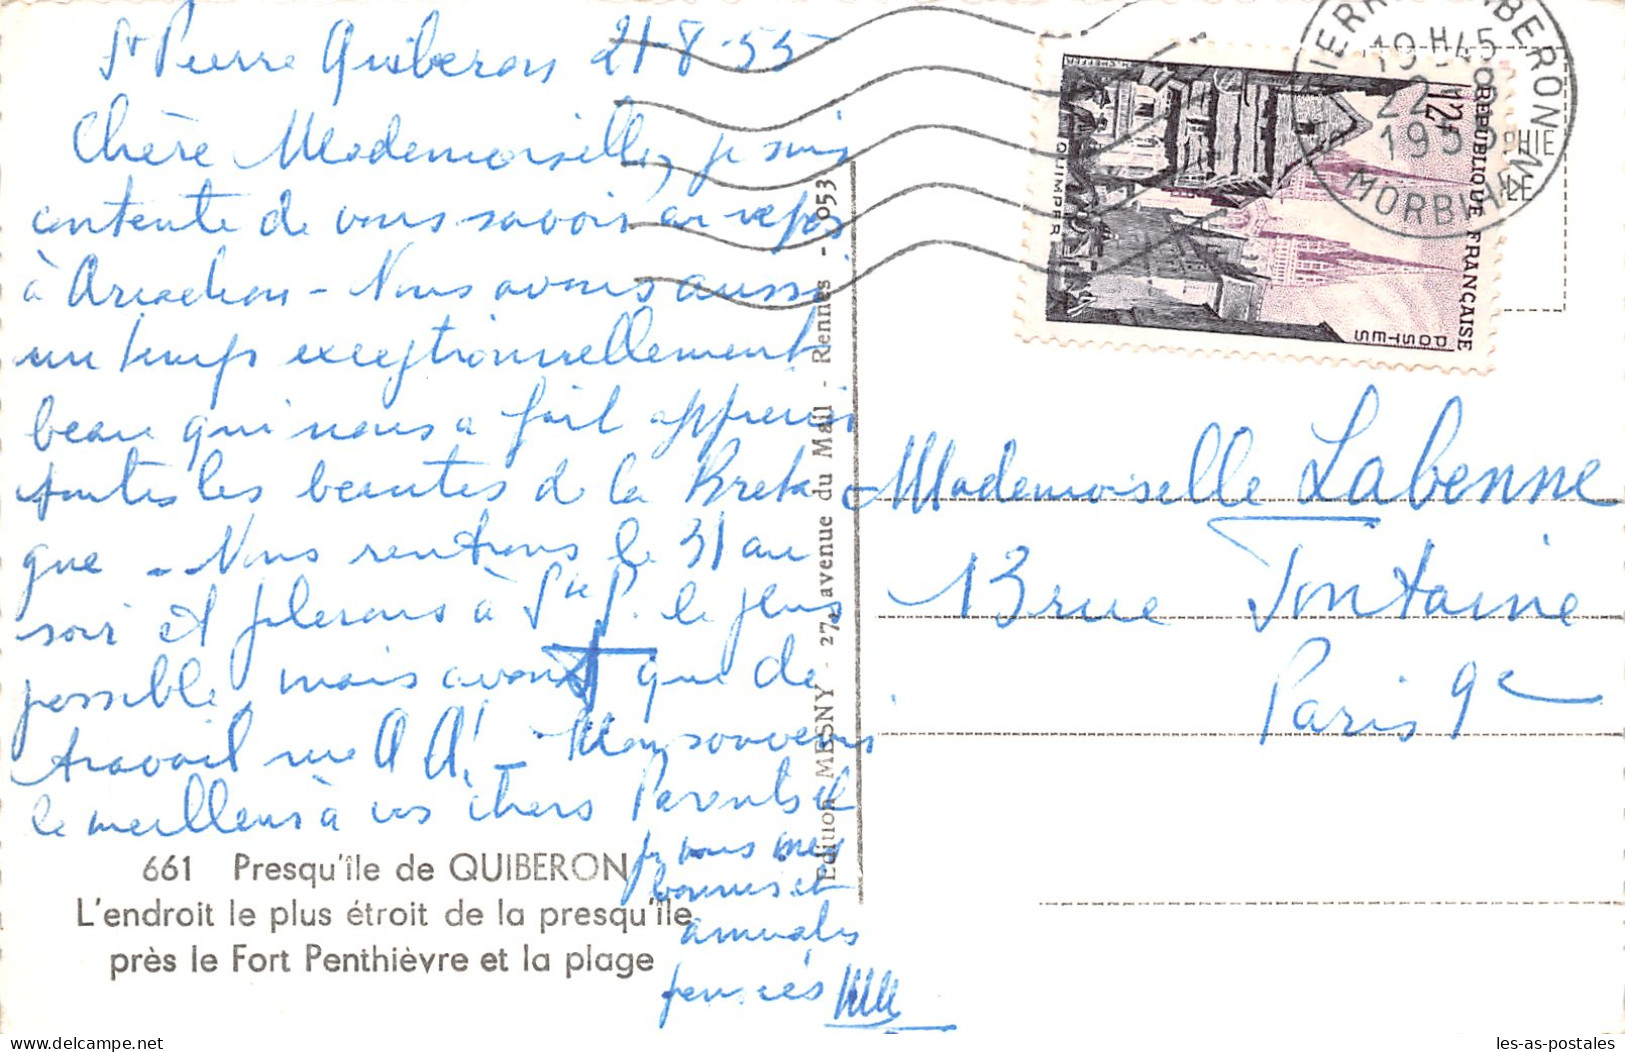 St Pierre Quiberon 21-8-55
Chère Mademoiselle, je suis
contente de vous savoir en repos
à Arcachon - Nous avons aussi
un temps exceptionnellement
beau qui nous a fait apprécier
toutes les beautés de la Breta-
gne - Nous rentrons le 31 au
soir et filerons à Ste P. le plus
possible, mais avant que de
travail rue A A! - Mon souvenir
le meilleur à vos chers Parents et
je vous mes
bonnes et
amicales
pensées
661 Presqu'île de QUIBERON
L'endroit le plus étroit de la presqu'île
près le Fort Penthièvre et la plage
Edition MESNY - 27, avenue du Mail - Rennes - 053
PIERRE QUIBERON
19 H45
22
1955
MORBIHAN
12F
REPUBLIQUE FRANÇAISE
POSTES
QUIMPER
PHIE
Mademoiselle Labenne
13 rue Fontaine
Paris 9e
les-as-postales
delcampe.net